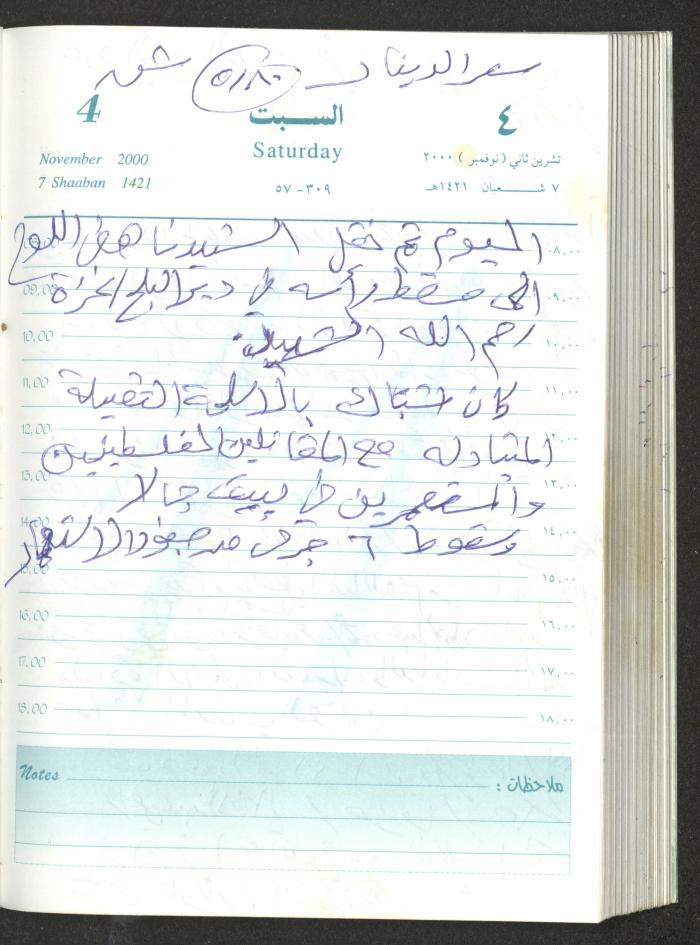 سعر الدينار ٥/٨٠ شق
4
السبت
٤
November 2000
Saturday
تشرين ثاني (نوفمبر) ٢٠٠٠
7 Shaaban 1421
٣٠٩-٥٧
٧ شعبان ١٤٢١هـ
اليوم تم نقل الشهيد ناهض اللوح
09,00
٠٩,٠٠
الى مسقط رأسه في دير البلح / غزة
10,00
١٠,٠٠
رحم الله الشهيد
11,00
١١,٠٠
كان اشتباك بالاسلحة الثقيلة
12,00
١٢,٠٠
المتبادله مع المقاتلين الفلسطينين
13,00
١٣,٠٠
والمستعمرين في بيت جالا
14,00
١٤,٠٠
وسقوط ٦ جرحى من صفوف الاستعمار
15,00
١٥,٠٠
16,00
١٦,٠٠
17,00
١٧,٠٠
18,00
١٨,٠٠
Notes
ملاحظات :